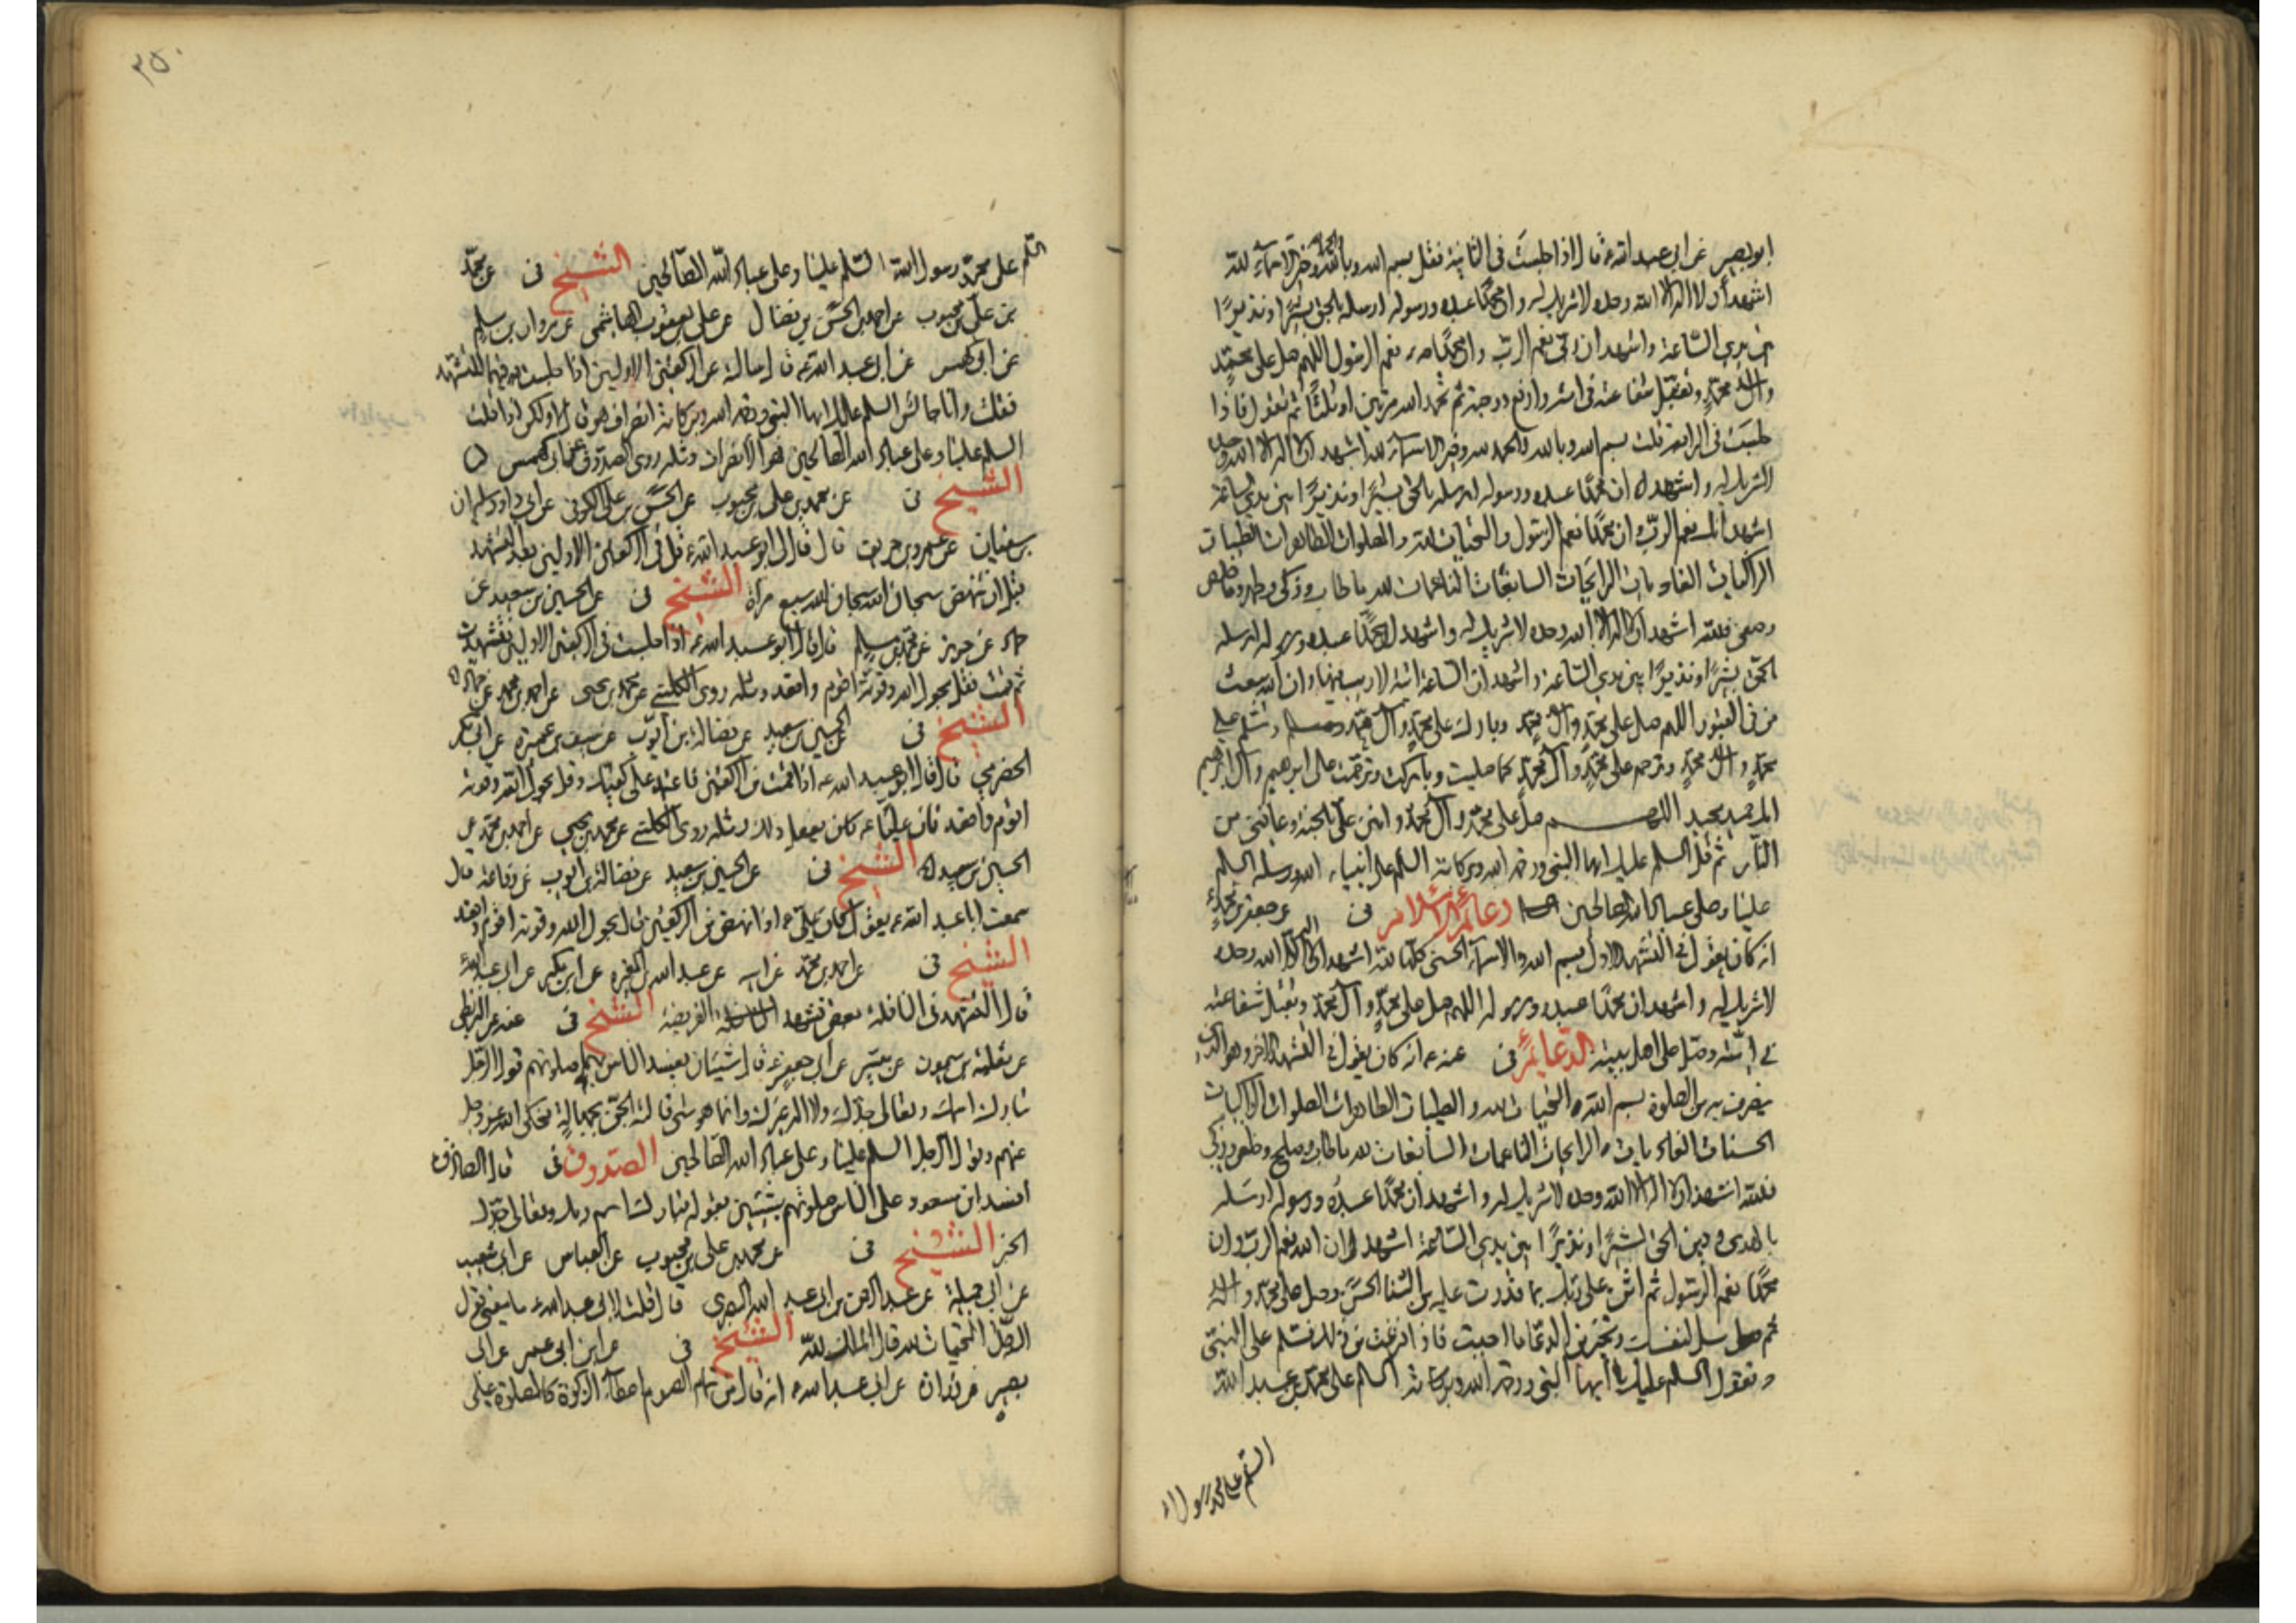 ابو بصير عن ابي عبد الله ع قال اذا جلست في الثانية فقل بسم الله وبالله والحمد لله وخير الاسماء لله
اشهد أن لا اله الا الله وحده لا شريك له وان محمدًا عبده ورسوله ارسله بالحق بشيرًا ونذيرًا
بين يدي الساعة واشهد ان ربي نعم الرب وان محمدًا نعم الرسول اللهم صل على محمد
وال محمد وتقبل شفاعته في امته وارفع درجته ثم تحمد الله مرتين او ثلثًا ثم تقول فاذا
جلست في الرابعة قلت بسم الله وبالله والحمد لله وخير الاسماء لله اشهد ان لا اله الا الله وحده
لا شريك له واشهد ان محمدًا عبده ورسوله ارسله بالحق بشيرًا ونذيرًا بين يدي الساعة
اشهد انك نعم الرب وان محمدًا نعم الرسول والتحيات لله والصلوات الطاهرات الطيبات
الزاكيات الغاديات الرايحات السابغات الناعمات لله ما طاب وزكى وطهر وخلص
وصفى فلله اشهد ان لا اله الا الله وحده لا شريك له واشهد ان محمدًا عبده ورسوله ارسله
بالحق بشيرًا ونذيرًا بين يدي الساعة واشهد ان الساعة اتية لا ريب فيها وان الله يبعث
من في القبور اللهم صل على محمد وال محمد وبارك على محمد وآل محمد وسلم على
محمد وال محمد وترحم على محمد وآل محمد كما صليت وباركت وترحمت على ابرهيم وآل ابرهيم
انك حميد مجيد اللهم صل على محمد وآل محمد وامنن علي بالجنة وعافني من
النار ثم قل السلم عليك ايها النبي ورحمة الله وبركاته السلم على انبياء الله ورسله السلم
علينا وعلى عباد الله الصالحين دعائم الاسلام في عن جعفر بن محمد ع
انه كان يقول في التشهد الاول بسم الله والاسماء الحسنى كلها لله اشهد ان لا اله الا الله وحده
لا شريك له واشهد ان محمدًا عبده ورسوله اللهم صل على محمد وآل محمد وتقبل شفاعته
في امته وصل على اهل بيته الدعائم في عنه ع انه كان يقول في التشهد الاخر وهو الذي
ينصرف به من الصلوة بسم الله التحيات لله والطيبات الطاهرات الصلوات الزاكيات
الحسنات الغاديات الرايحات الناعمات السابغات لله ما طاب وصلح وخلص وزكى
فلله اشهد ان لا اله الا الله وحده لا شريك له واشهد ان محمدًا عبده ورسوله ارسله
بالهدى ودين الحق بشيرًا ونذيرًا بين يدي الساعة اشهد ان الله نعم الرب وان
محمدًا نعم الرسول ثم اثن على ربك بما قدرت عليه من الثنا الحسن وصل على محمد واله
ثم سل لنفسك وتخير من الدعا ما احببت فاذا فرغت من ذلك فسلم على النبي
وتقول السلم عليك ايها النبي ورحمة الله وبركاته السلم على محمد بن عبد الله
السلم على محمد رسول الله
٣٥٠
السلم على محمد رسول الله السلم علينا وعلى عباد الله الصالحين الشيخ في عن محمد
بن علي بن محبوب عن احمد بن الحسن بن فضال عن علي بن يعقوب الهاشمي عن مروان بن مسلم
عن ابي كهمس عن ابي عبد الله ع قال سالته عن الركعتين الاوليين اذا جلست فيهما للتشهد
فقلت وانا جالس السلم عليك ايها النبي ورحمة الله وبركاته انصراف هو قال لا ولكن اذا قلت
السلم علينا وعلى عباد الله الصالحين فهو الانصراف ومثله روى الصدوق عن ابي كهمس
الشيخ في عن محمد بن علي بن محبوب عن الحسن بن علي الكوفي عن ابي داود سليمان
بن سفيان عن عمرو بن حريث قال قال لي ابو عبد الله ع قل في الركعتين الاوليين بعد التشهد
قبل ان تنهض سبحان الله سبحان الله سبع مرات الشيخ في عن الحسين بن سعيد عن
حماد عن حريز عن محمد بن مسلم قال قال ابو عبد الله ع اذا جلست في الركعتين الاوليين فتشهدت
ثم قمت فقل بحول الله وقوته اقوم واقعد ومثله روى الكليني عن محمد بن يحيى عن احمد بن محمد عن حماد
الشيخ في عن الحسين بن سعيد عن فضالة بن ايوب عن سيف بن عميرة عن ابي بكر
الحضرمي قال قال ابو عبد الله ع اذا قمت من الركعتين فاعتمد على كفيك وقل بحول الله وقوته
اقوم واقعد فان عليًا ع كان يفعل ذلك ومثله روى الكليني عن محمد بن يحيى عن احمد بن محمد عن
الحسين بن سعيد الشيخ في عن الحسين بن سعيد عن فضالة بن ايوب عن رفاعة قال
سمعت ابا عبد الله ع يقول كان علي ع اذا نهض من الركعتين قال بحول الله وقوته اقوم واقعد
الشيخ في عن احمد بن محمد عن ابيه عن عبد الله بن المغيرة عن ابن بكير عن ابي عبد الله ع
قال التشهد في النافلة بعض تشهد الفريضة الشيخ في عنه عن البزنطي
عن ثعلبة بن ميمون عن ميسر عن ابي جعفر ع قال شيئان يفسد الناس بهما صلوتهم قول الرجل
تبارك اسمك وتعالى جدك ولا اله غيرك وانما هو شي قالته الجن بجهالة فحكى الله عز وجل
عنهم وقول الرجل السلم علينا وعلى عباد الله الصالحين الصدوق في قال الصادق ع
افسد ابن مسعود على الناس صلوتهم بشيئين بقوله تبارك اسم ربك وتعالى جدك
الخبر الشيخ في عن محمد بن علي بن محبوب عن العباس عن ابي شعيب
عن ابي جميلة عن عبد الرحمن بن ابي عبد الله البصري قال قلت لابي عبد الله ع ما يعني قول
الرجل التحيات لله قال الملك لله الشيخ في عن ابن ابي عمير عن ابي
بصير عن زرارة عن ابي عبد الله ع انه قال من تمام الصوم اعطاء الزكوة كالصلوة على